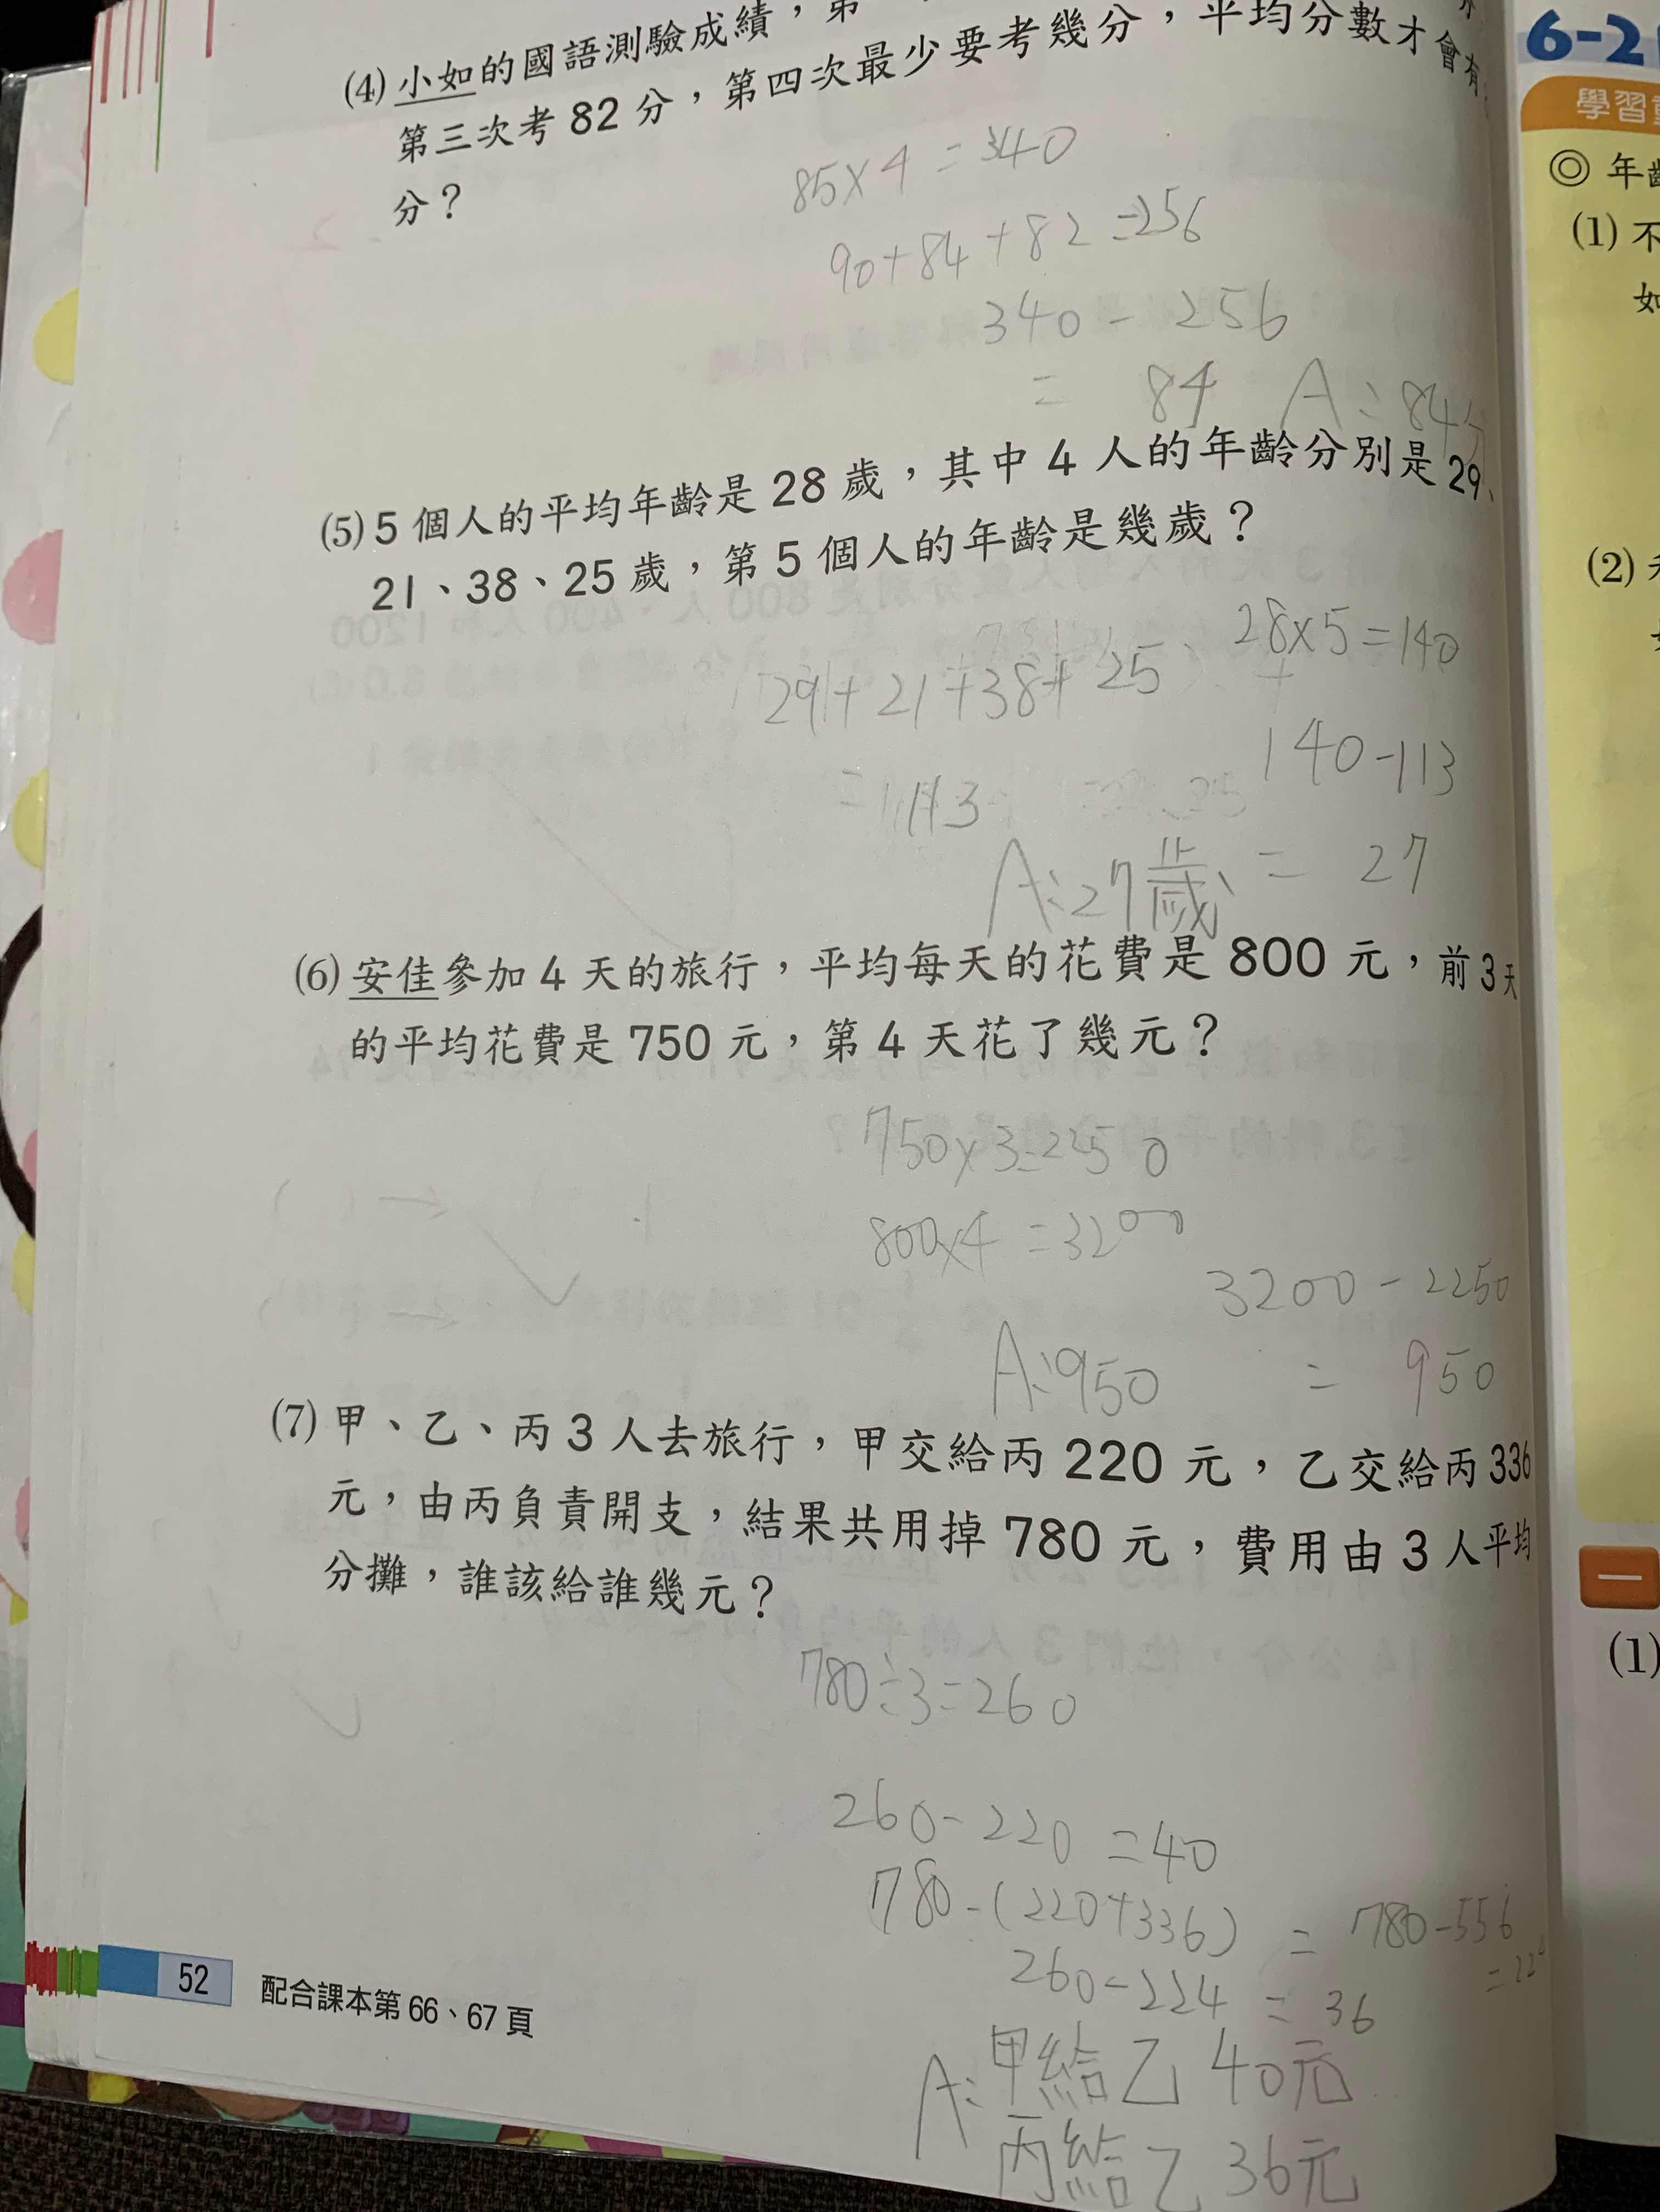 (4) 小如的國語測驗成績，第
第三次考 82 分，第四次最少要考幾分，平均分數才會有
分？
85×4=340
90+84+82=256
340-256
= 84 A：84分
(5) 5 個人的平均年齡是 28 歲，其中 4 人的年齡分別是 29、
21、38、25 歲，第 5 個人的年齡是幾歲？
28×5=140
29+21+38+25
140-113
=113
= 27
A：27歲
(6) 安佳參加 4 天的旅行，平均每天的花費是 800 元，前 3 天
的平均花費是 750 元，第 4 天花了幾元？
750×3=2250
800×4=3200
3200-2250
A：950 = 950
(7) 甲、乙、丙 3 人去旅行，甲交給丙 220 元，乙交給丙 336
元，由丙負責開支，結果共用掉 780 元，費用由 3 人平均
分攤，誰該給誰幾元？
780÷3=260
260-220=40
780-(220+336) = 780-556
=224
260-224=36
A：甲給乙 40元
丙給乙 36元
52 配合課本第 66、67 頁
6-2
學習
◎ 年齡
(1) 不
如
(2)
一
(1)